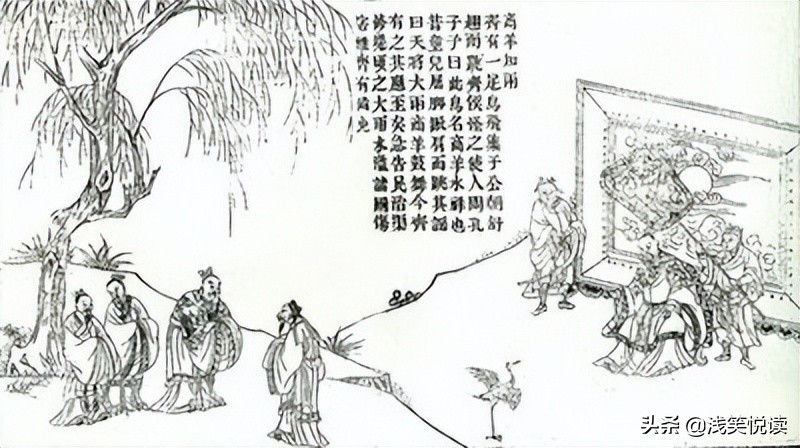 商羊知雨
齊有一足鳥飛集于公朝舒
翅而跳齊侯怪之使人問孔
子子曰此鳥名商羊水祥也
昔童兒屈脚振肩而跳其謡
曰天將大雨商羊鼓舞今齊
有之其應至矣急告民治渠
修隄頃之大雨水溢諸國傷
害惟齊有備免
头条 @浅笑悦读